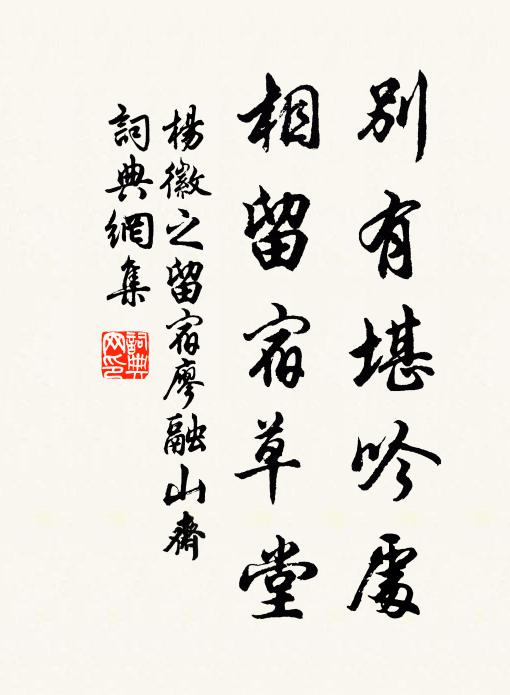 別有堪吟處
相留宿草堂
楊徽之留宿廖融山齋
詞典網集
詞典
網印